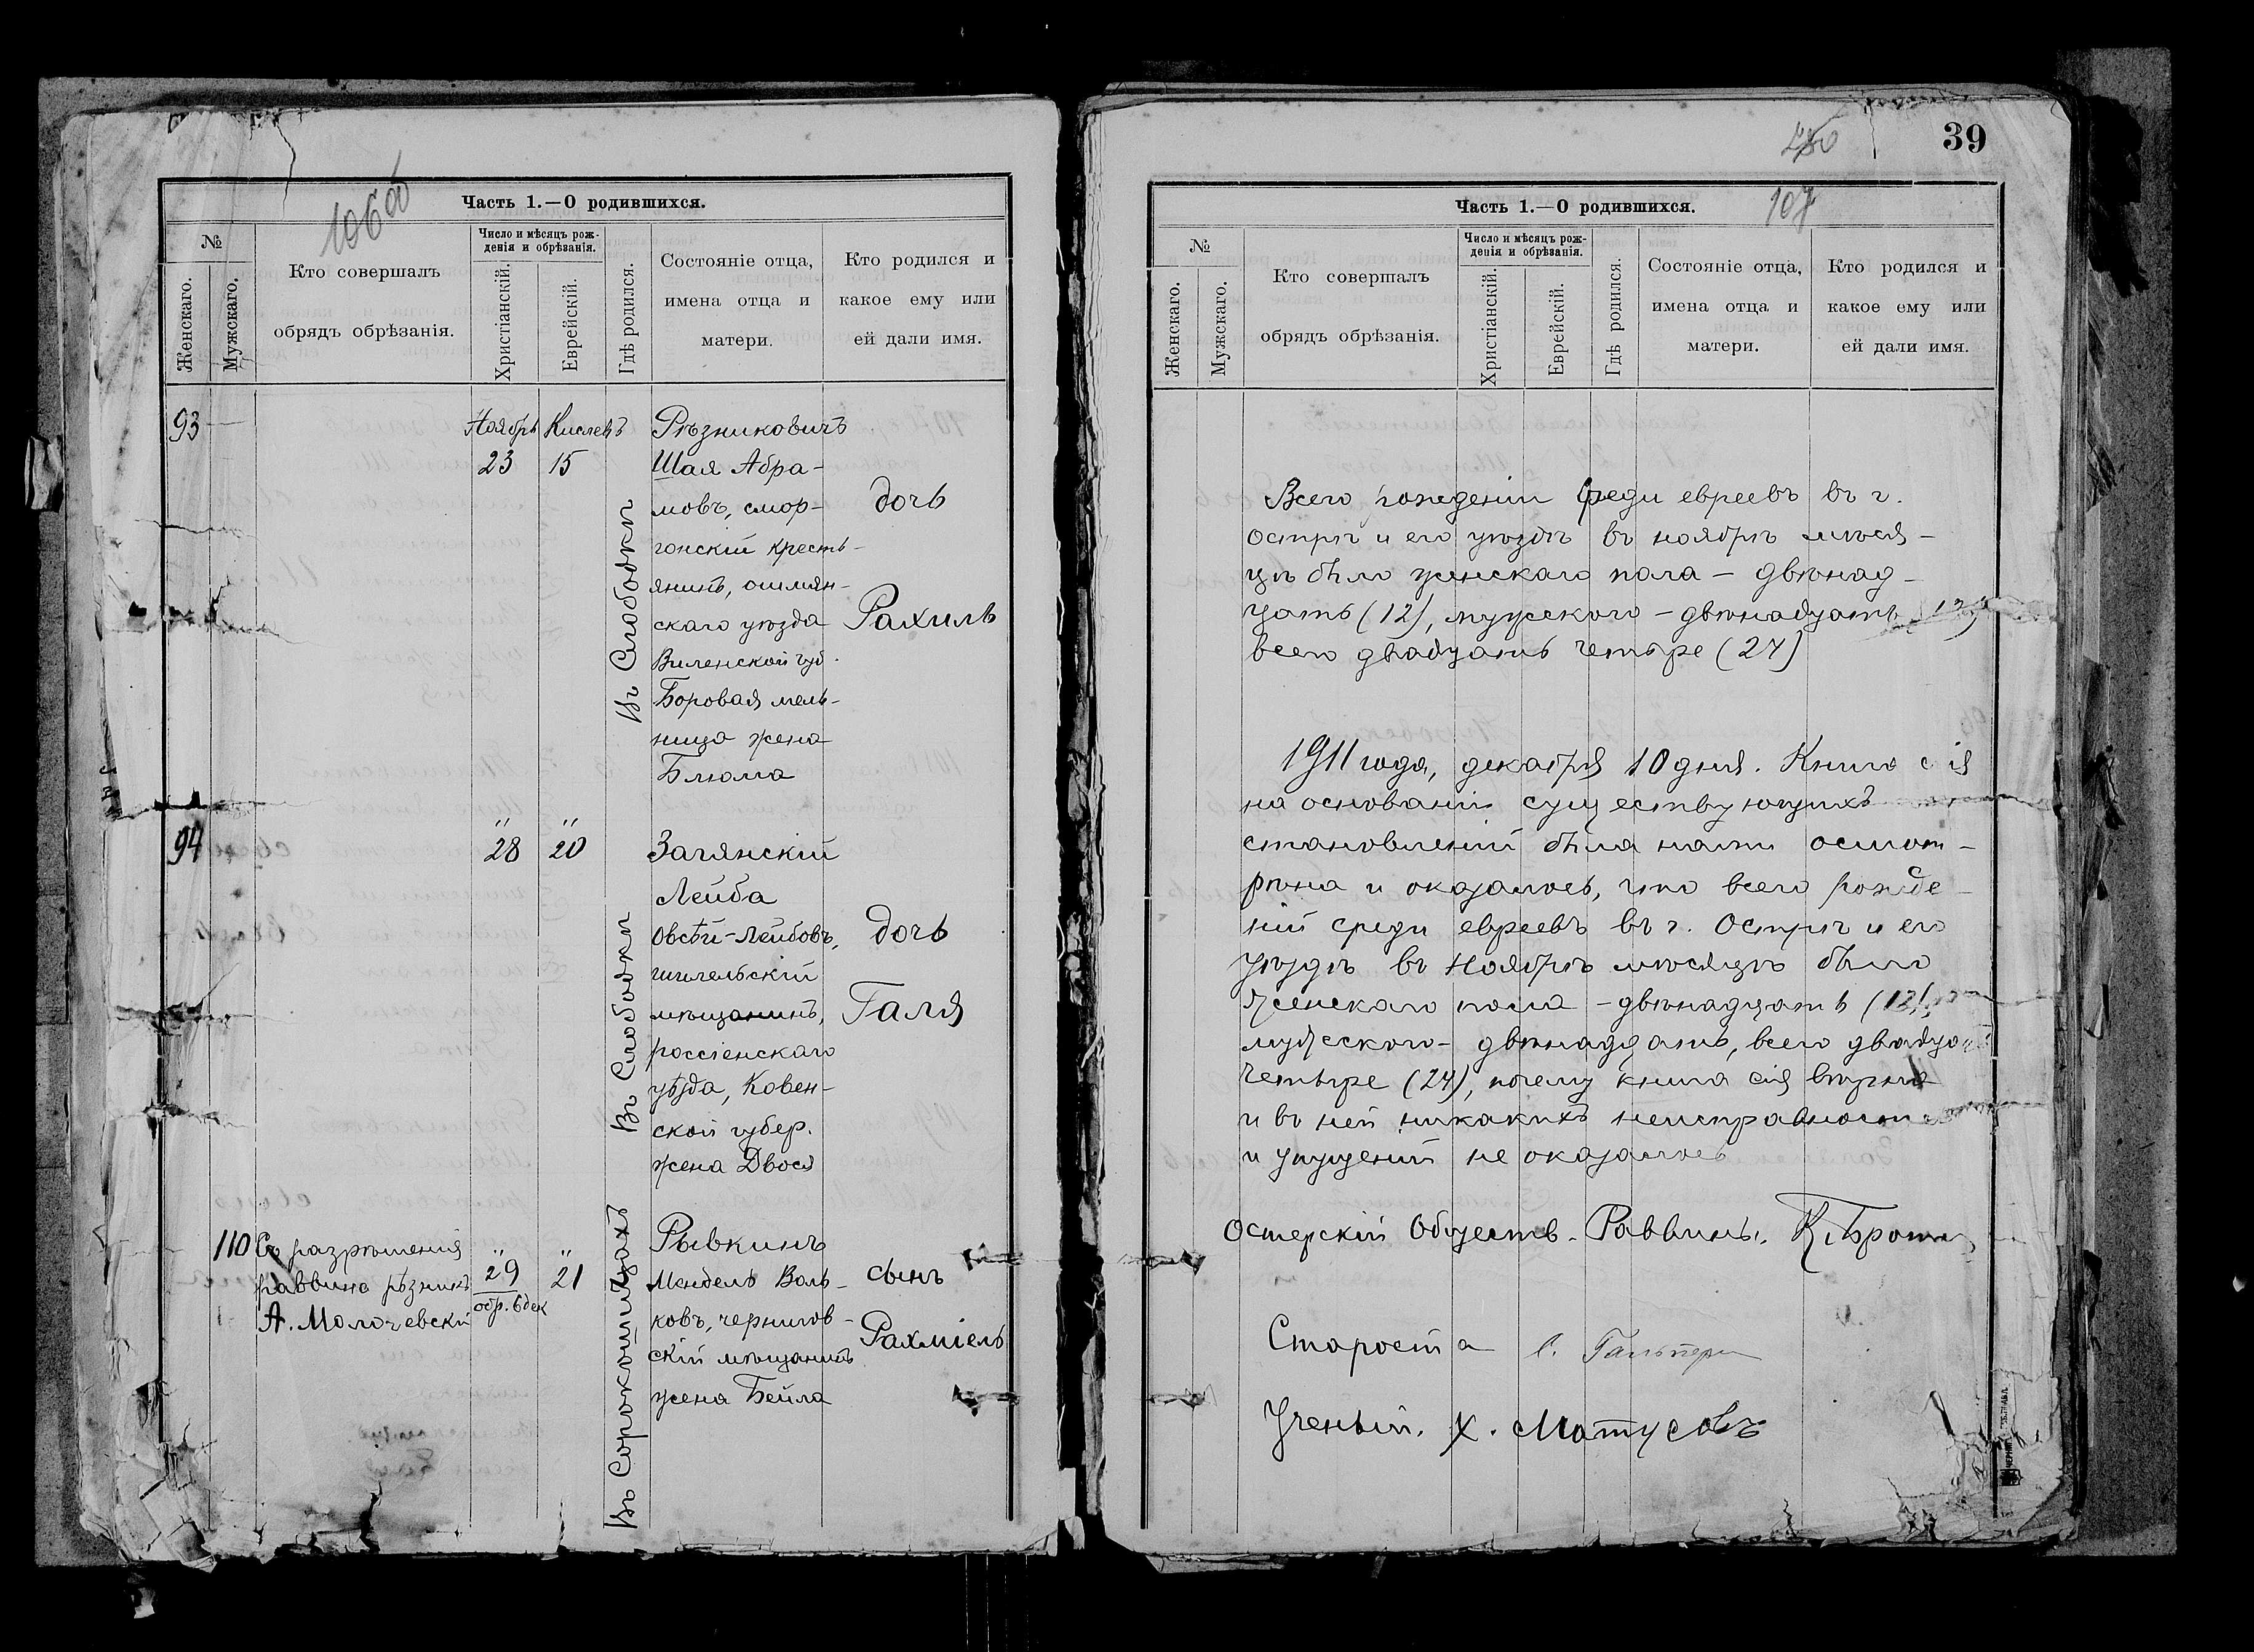 106 об
Часть 1.—О родившихся.
№
Женскаго.
Мужскаго.
Кто совершалъ
обрядъ обрѣзанія.
Число и мѣсяцъ рож-
денія и обрѣзанія.
Христіанскій.
Еврейскій.
Гдѣ родился.
Состояніе отца,
имена отца и
матери.
Кто родился и
какое ему или
ей дали имя.
93
Ноябрь
23
Кислевъ
15
Въ Слободкѣ
Рѣзниковичъ
Шая Абра-
мовъ, смор-
гонскій кресть-
янинъ, ошмян-
скаго уѣзда
Виленской губ.
Боровая мель-
ница жена
Блюма
дочь
Рахиль
94
"
28
"
20
Въ Слободкѣ
Загянскій
Лейба
Овсѣй-Лейбовъ,
шилельскій
мѣщанинъ,
россіенскаго
уѣзда, Ковен-
ской губер.
жена Двося
дочь
Галя
110
Съ разрѣшенія
раввина рѣзникъ
А. Молочевскій
"
29
обр. 6 дек
"
21
Въ Сорокошичахъ
Рывкинъ
Мендель Воль-
ковъ, чернигов-
скій мѣщанинъ
жена Бейла
сынъ
Рахміель
39
107
Часть 1.—О родившихся.
№
Женскаго.
Мужскаго.
Кто совершалъ
обрядъ обрѣзанія.
Число и мѣсяцъ рож-
денія и обрѣзанія.
Христіанскій.
Еврейскій.
Гдѣ родился.
Состояніе отца,
имена отца и
матери.
Кто родился и
какое ему или
ей дали имя.
Всего рожденій среди евреевъ въ г.
Острѣ и его уѣздѣ въ ноябрѣ мѣся-
цѣ было женскаго пола — двѣнад-
цать (12), мужского — двѣнадцать (12)
всего двадцать четыре (24)
1911 года, декабря 10 дня. Книга сія
на основаніи существующихъ
становленій была нами осмот-
рѣна и оказалось, что всего рожде-
ній среди евреевъ въ г. Острѣ и его
уѣздѣ въ Ноябрѣ мѣсяцѣ было
женскаго пола — двѣнадцать (12),
мужского — двѣнадцать, всего двадцать
четыре (24), почему книга сія вѣрна
и въ ней никакихъ неисправностей
и упущеній не оказалось
Остерскій Обществ. Раввинъ.
Староста С. Гальперн
Ученый. Х. Матусовъ